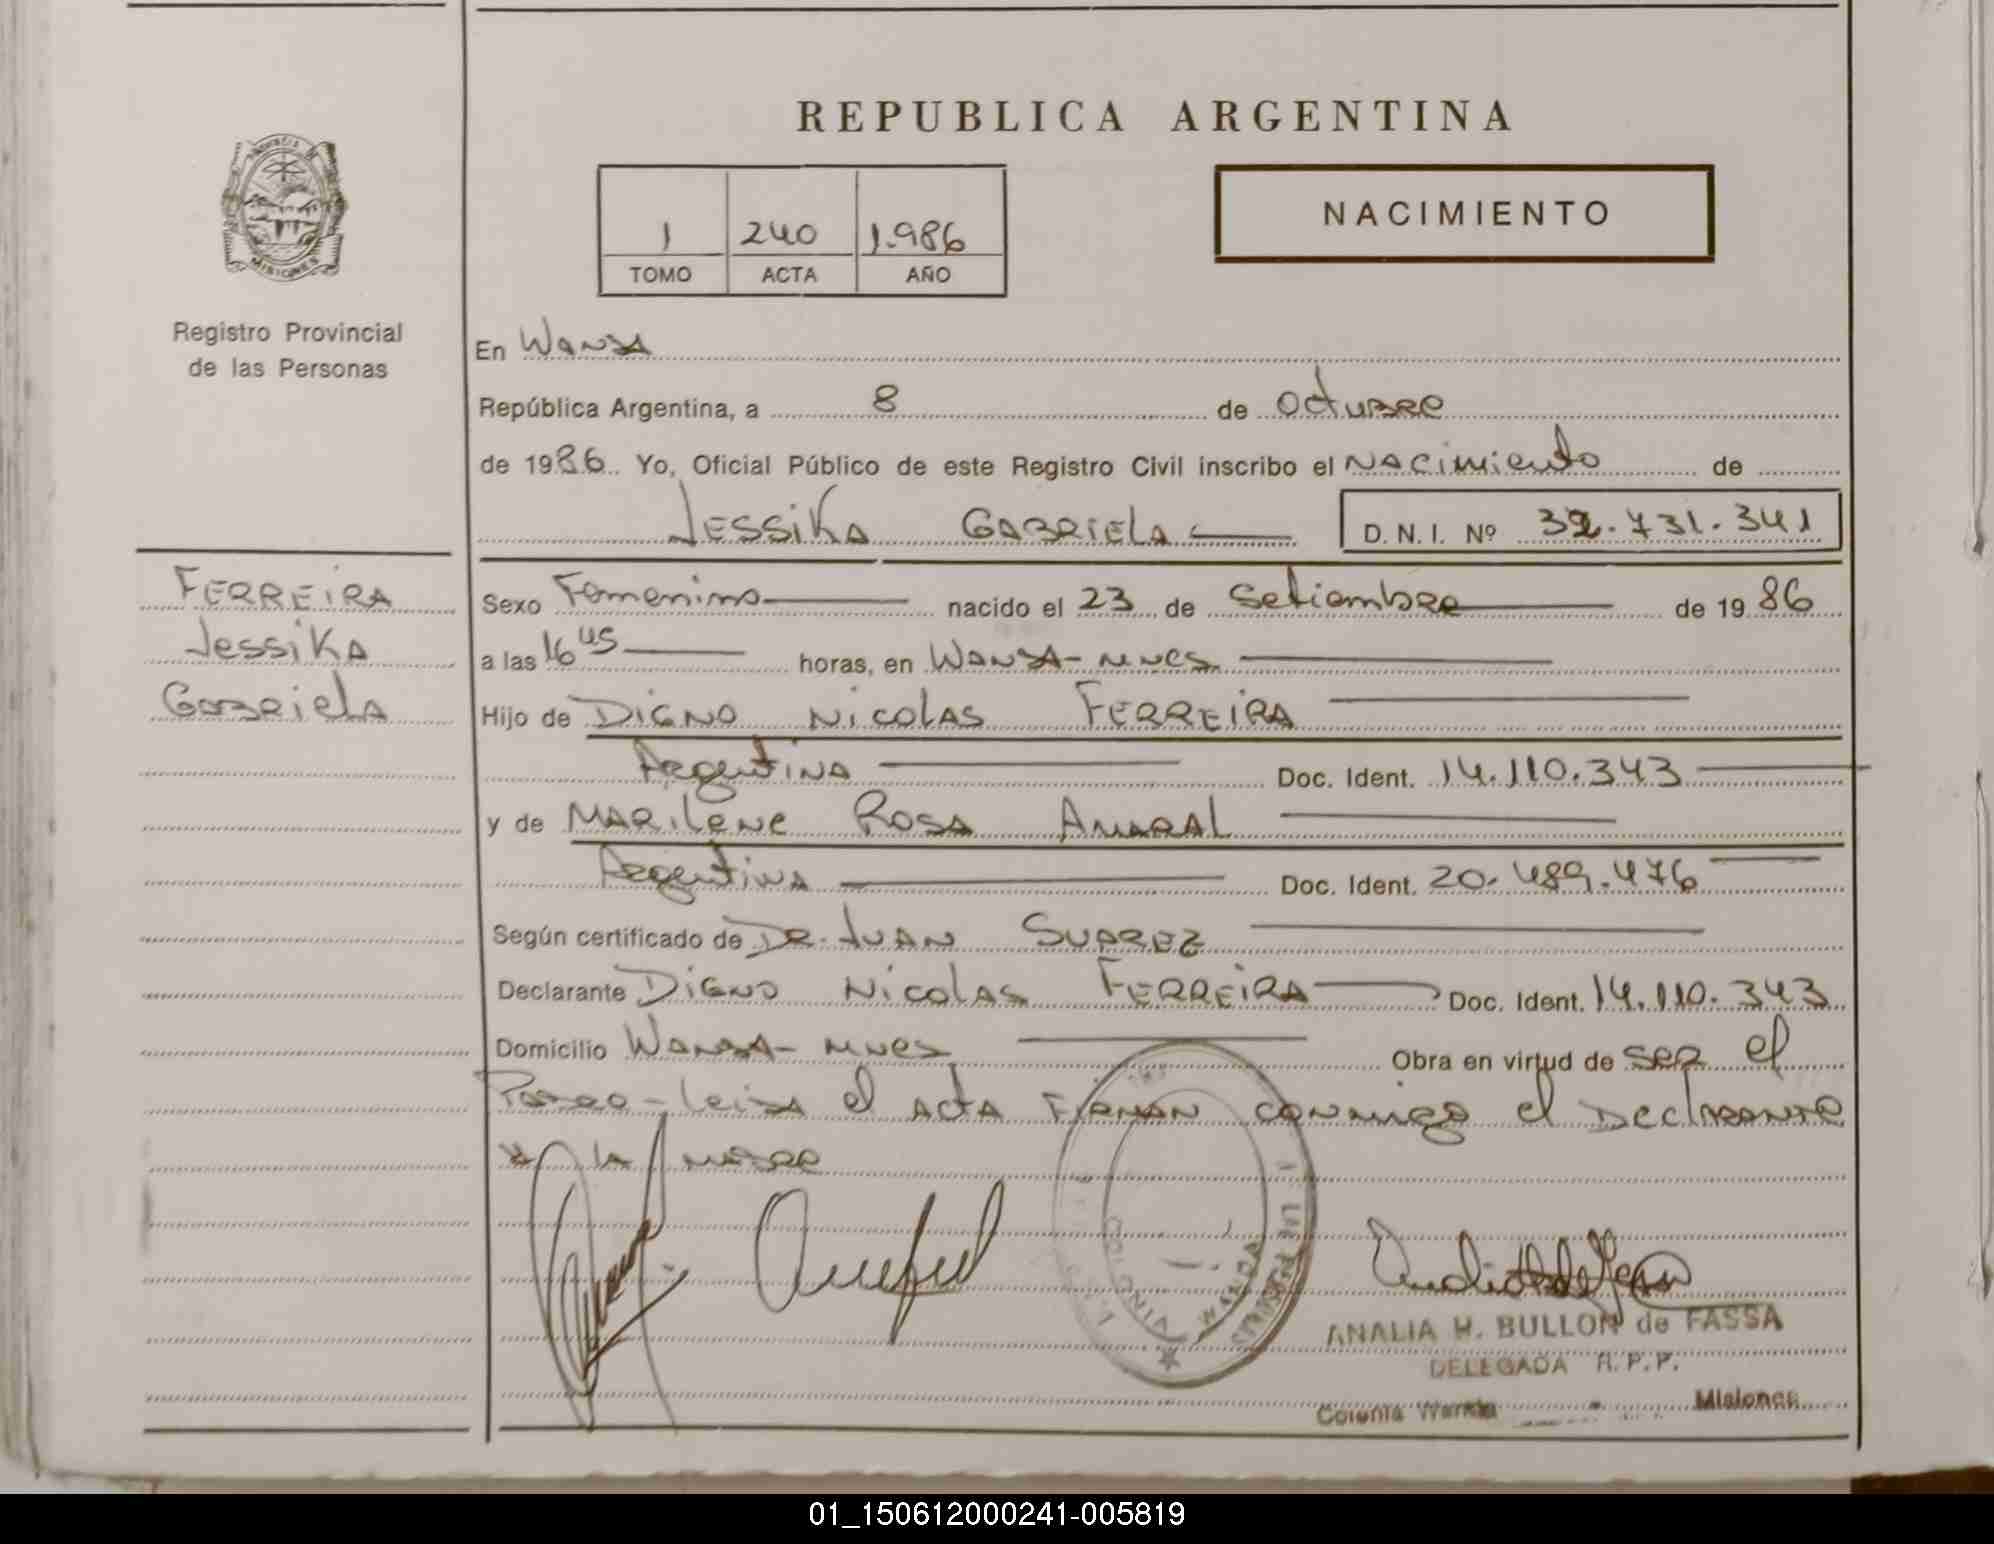 REPUBLICA ARGENTINA
NACIMIENTO
1 240 1.986
TOMO ACTA AÑO
PROVINCIA DE
MISIONES
Registro Provincial
de las Personas
FERREIRA
Jessika
Gabriela
En Wanda
República Argentina, a 8 de octubre
de 1986. Yo, Oficial Público de este Registro Civil inscribo el Nacimiento de
JESSIKA GABRIELA D. N. I. Nº 32.731.341
Sexo Femenino nacido el 23 de Setiembre de 1986
a las 16 45 horas, en Wanda - Mnes
Hijo de DIGNO NICOLAS FERREIRA
Argentina Doc. Ident. 14.110.343
y de MARILENE ROSA AMARAL
Argentina Doc. Ident. 20.489.476
Según certificado de DR. JUAN SUAREZ
Declarante DIGNO NICOLAS FERREIRA Doc. Ident. 14.110.343
Domicilio Wanda - Mnes Obra en virtud de ser el
Padre - Leida el acta firman conmigo el declarante
y la madre
COLONIA WANDA
ANALIA H. BULLON de FASSA
DELEGADA R. P. P.
Colonia Wanda Misiones
01_150612000241-005819